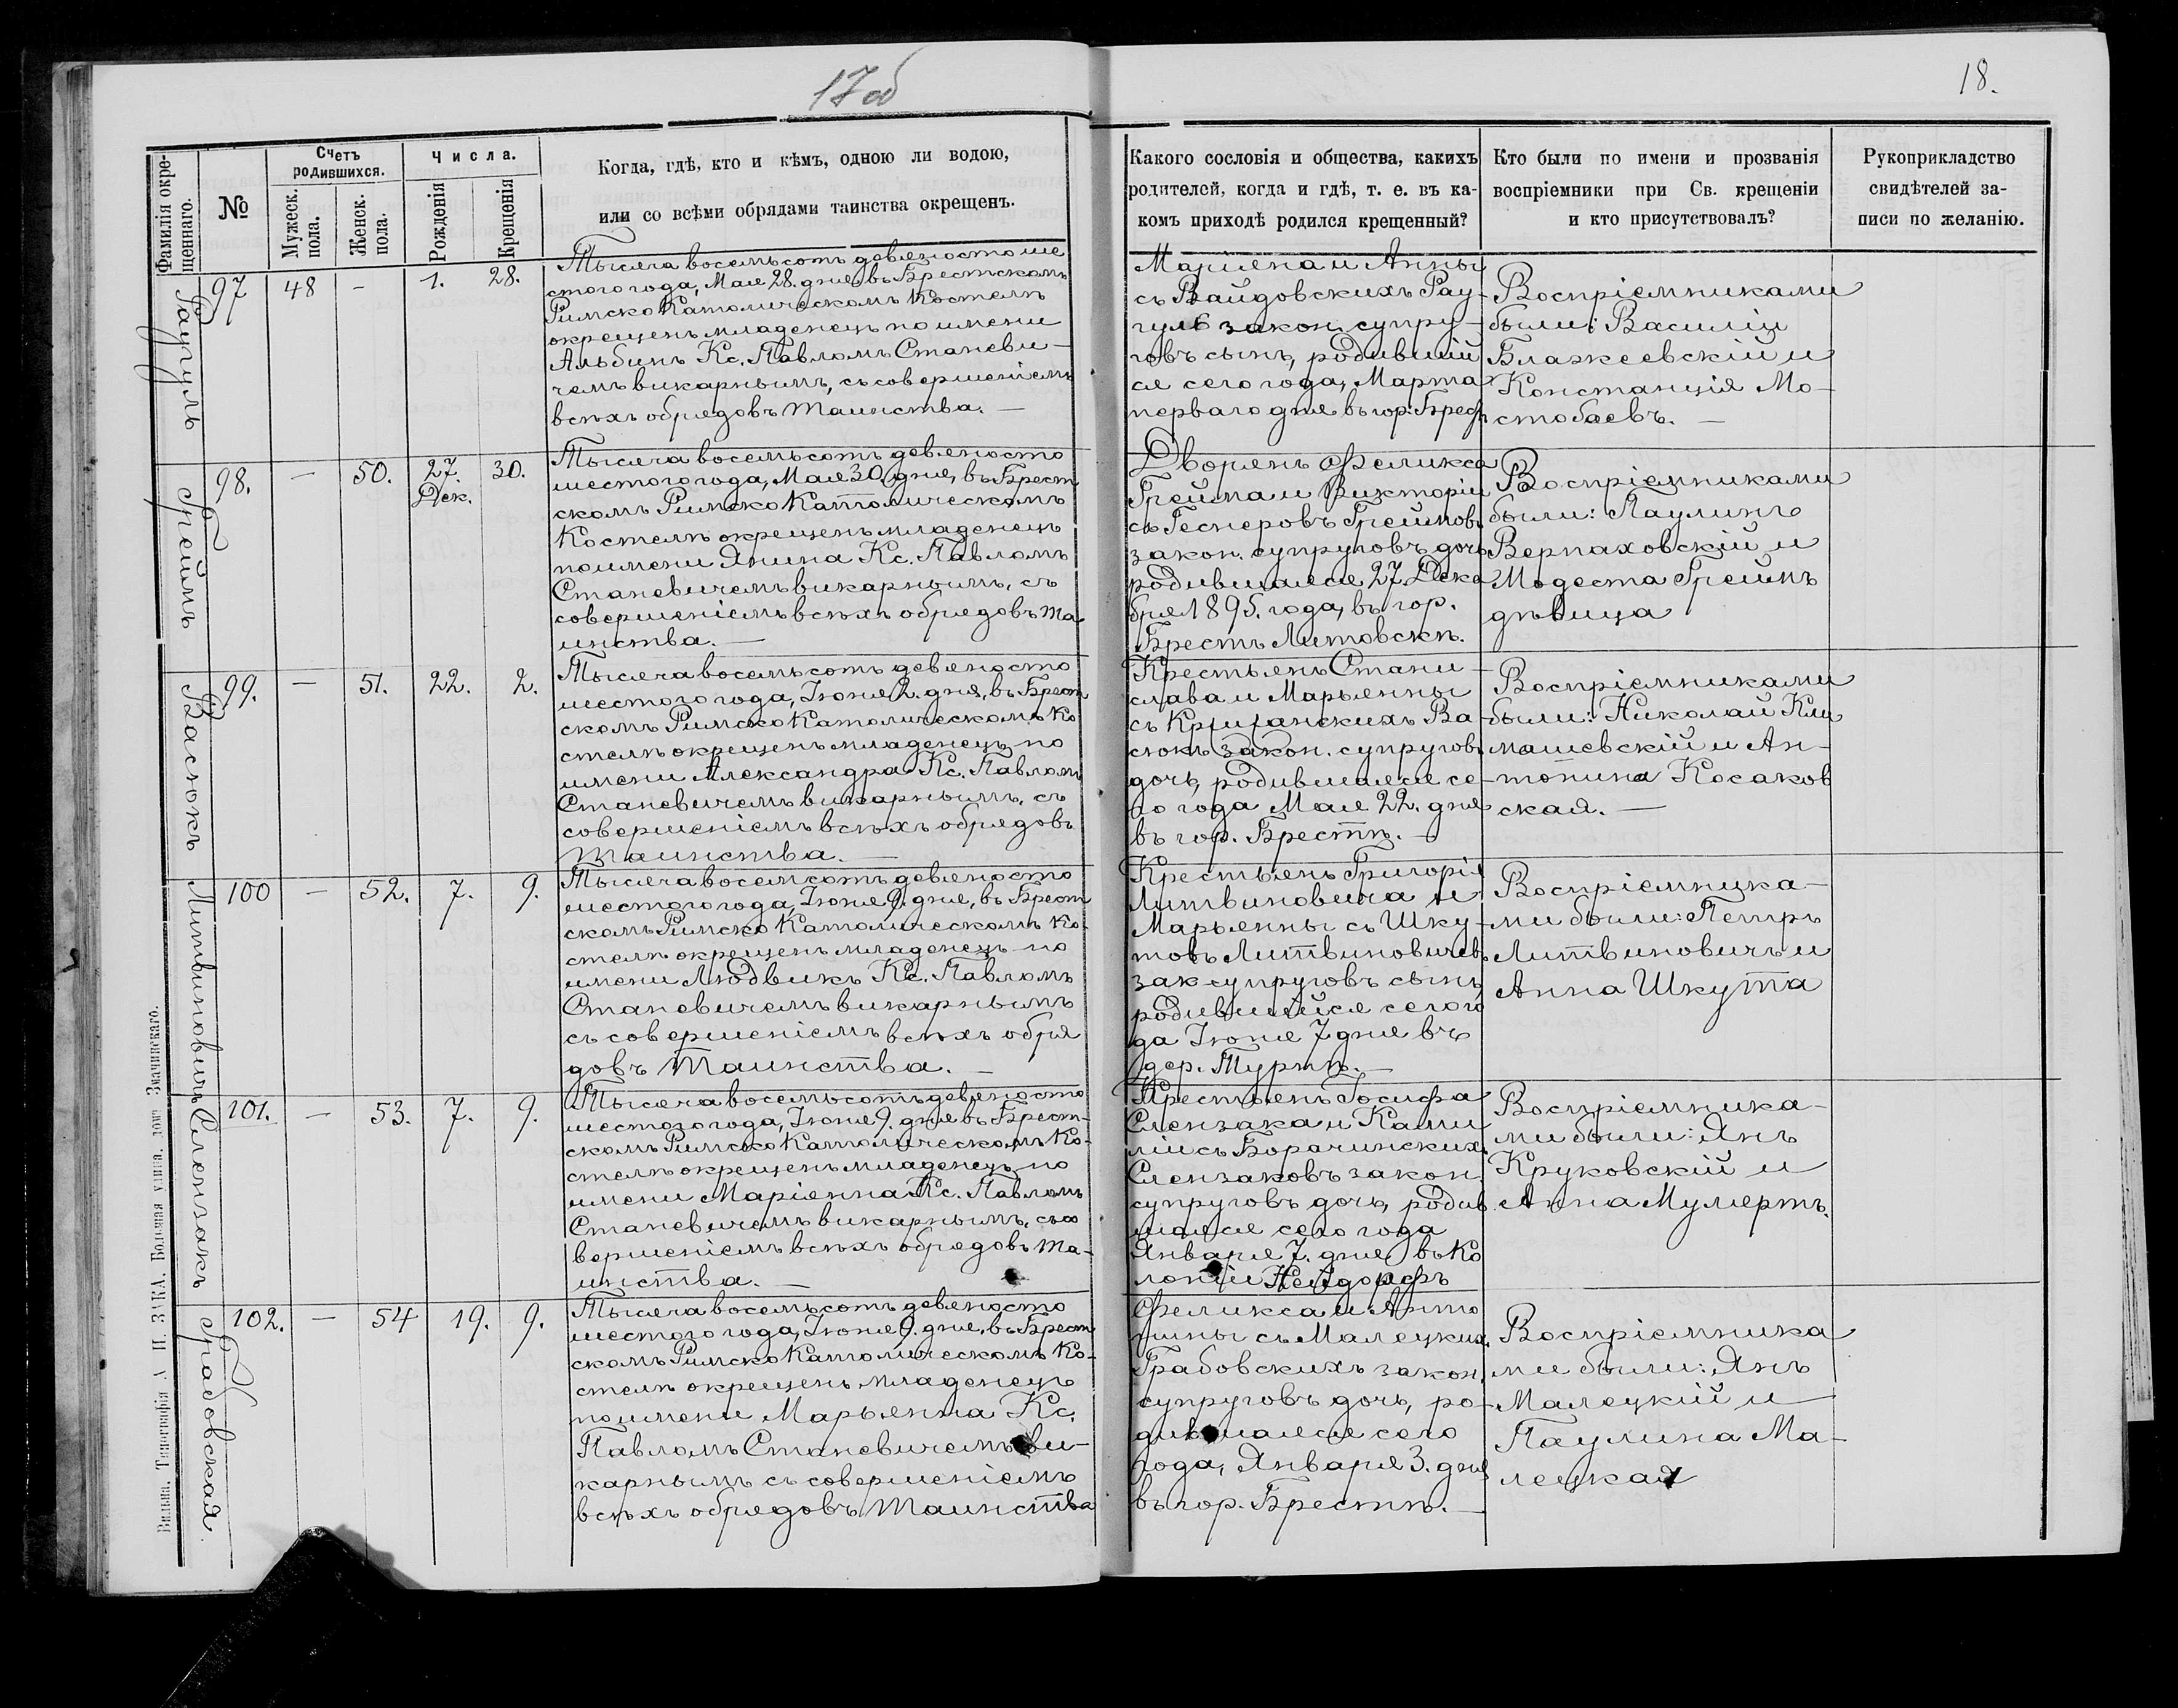 17об
18.
Фамилія окре-
щеннаго.
№
Счетъ
родившихся.
Мужеск.
пола.
Женск.
пола.
Числа.
Рожденія
Крещенія
Когда, гдѣ, кто и кѣмъ, одною ли водою,
или со всѣми обрядами таинства окрещенъ.
Какого сословія и общества, какихъ
родителей, когда и гдѣ, т. е. въ ка-
комъ приходѣ родился крещенный?
Кто были по имени и прозванія
воспріемники при Св. крещеніи
и кто присутствовалъ?
Рукоприкладство
свидѣтелей за-
писи по желанію.
Раугуль
97 48 - 1. 28.
Тысяча восемьсотъ девяносто ше
стого года, Мая 28. дня, въ Брестскомъ
Римско Католическомъ Костелѣ
окрещенъ младенецъ по имени
Альбинъ Кс. Павломъ Станеви-
чемъ викарнымъ, съ совершеніемъ
всѣхъ обрядовъ Таинства. —
Маріяна и Анны
съ Вайдовскихъ Рау-
гуль закон. супру-
говъ сынъ, родившій
ся сего года, Марта
перваго дня въ гор. Брест
Воспріемниками
были: Василій
Блажеевскій и
Констанція Мо-
стобаевъ. —
Греймъ
98. — 50. 27. Дек. 30.
Тысяча восемьсотъ девяносто
шестого года, Мая 30 дня, въ Брест
скомъ Римско Католическомъ
Костелѣ окрещенъ младенецъ
по имени Янина Кс. Павломъ
Станевичемъ викарнымъ, съ
совершеніемъ всѣхъ обрядовъ Та-
инства. —
Дворянъ Феликса
Грейма и Викторіи
съ Геснеровъ Греймов
закон. супруговъ дочь
родившаяся 27 Дека
бря 1895. года, въ гор.
Брестъ Литовскѣ.
Воспріемниками
были: Паулинъ
Вернаховскій и
Модеста Греймъ
дѣвица
Васюкъ
99. — 51. 22. 2.
Тысяча восемьсотъ девяносто
шестого года, Іюня 2. дня, въ Брест
скомъ Римско Католическомъ Ко
стелѣ окрещенъ младенецъ по
имени Александра Кс. Павломъ
Станевичемъ викарнымъ, съ
совершеніемъ всѣхъ обрядовъ
Таинства. —
Крестьянъ Стани-
слава и Марьянны
съ Ва-
сюкъ закон. супругов
дочь, родившаяся се-
го года Мая 22. дня
въ гор. Брестѣ. —
Воспріемниками
были: Николай Кли
машевскій и Ан-
тонина Косаков
ская. —
Литвиновичъ
100 — 52. 7. 9.
Тысяча восемсотъ девяносто
шестого года, Іюня 9. дня, въ Брест
скомъ Римско Католическомъ Ко-
стелѣ окрещенъ младенецъ по
имени Людвикъ Кс. Павломъ
Станевичемъ викарнымъ
съ совершеніемъ всѣхъ обря
довъ Таинства. —
Крестьянъ Григорія
Литвиновича и
Марьянны съ Шку-
товъ Литвиновичев.
зак супруговъ сынъ
родившійся сего го
да Іюня 7 дня въ
дер. Турнѣ. —
Воспріемника-
ми были: Петръ
Литвиновичъ и
Анна Шкута
Слензакъ
101. — 53. 7. 9.
Тысяча восемьсотъ девяносто
шестого года, Іюня 9. дня въ Брест-
скомъ Римско Католическомъ Ко-
стелѣ окрещенъ младенецъ по
имени Маріянна Кс. Павломъ
Станевичемъ викарнымъ, съ со
вершеніемъ всѣхъ обрядовъ Та-
инства. —
Крестьянъ Іосифа
Слензака и Ками
ліи съ Борачинских
Слензаковъ закон.
супруговъ дочь, родив
шаяся сего года
Января 7. дня въ Ко
лоніи Нейдорфъ
Воспріемника-
ми были: Янъ
Круковскій и
Анна Мулертъ.
Грабовская.
102. — 54 19. 9.
Тысяча восемьсотъ девяносто
шестого года, Іюня 9. дня, въ Брест
скомъ Римско Католическомъ Ко-
стелѣ окрещенъ младенецъ
по имени Марьянна Кс.
Павломъ Станевичемъ ви-
карнымъ съ совершеніемъ
всѣхъ обрядовъ Таинства
Феликса и Анто
нины съ Малецких.
Грабовскихъ закон.
супруговъ дочь, ро-
дившаяся сего
года, Января 3. дня
въ гор. Брестѣ. —
Воспріемника
ми были: Янъ
Малецкій и
Паулина Ма-
лецкая
Вильна. Типографія А. И. ЗАКА. Большая улица, дом. Значинскаго.